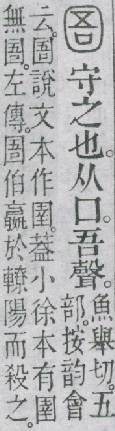 圄 守之也。从囗。吾聲。
魚舉切。五
部。按韵會
云。圄說文本作圉。葢小徐本有圉
無圄。左傳。圄伯嬴於轑陽而殺之。